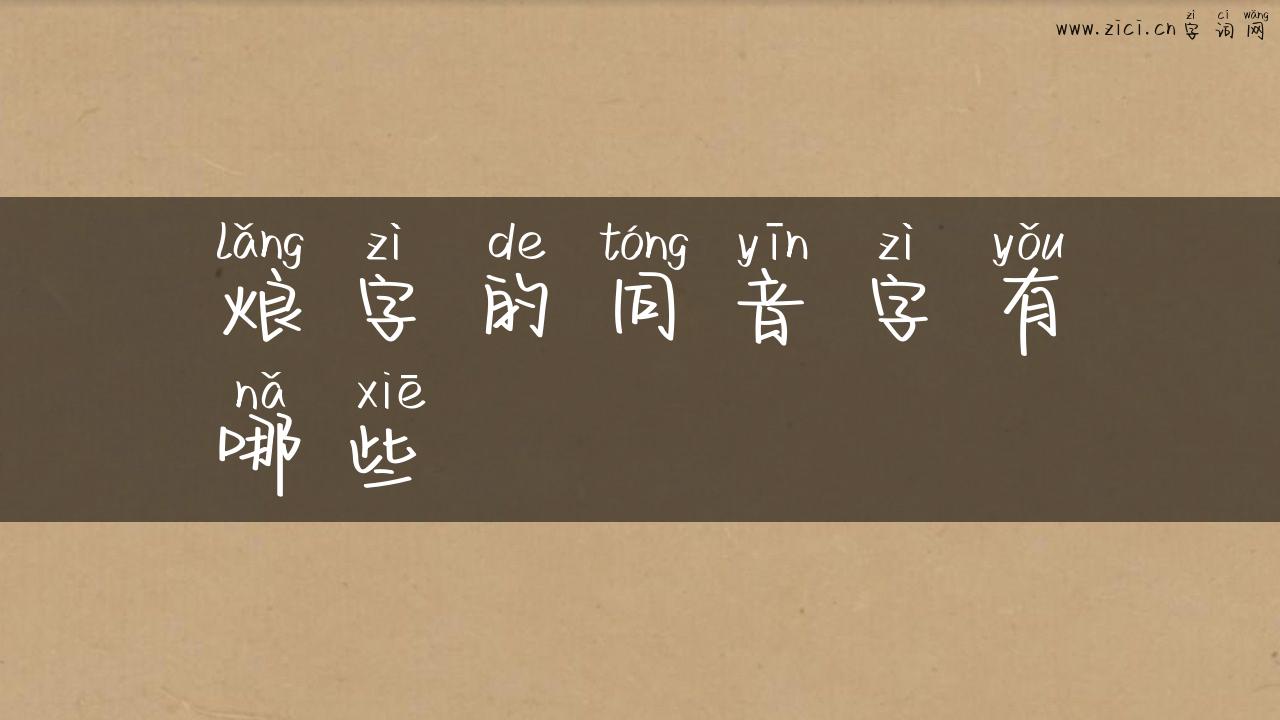 zì cí wǎng
www.zici.cn 字 词 网
lǎng zì de tóng yīn zì yǒu
烺 字 的 同 音 字 有
nǎ xiē
哪 些